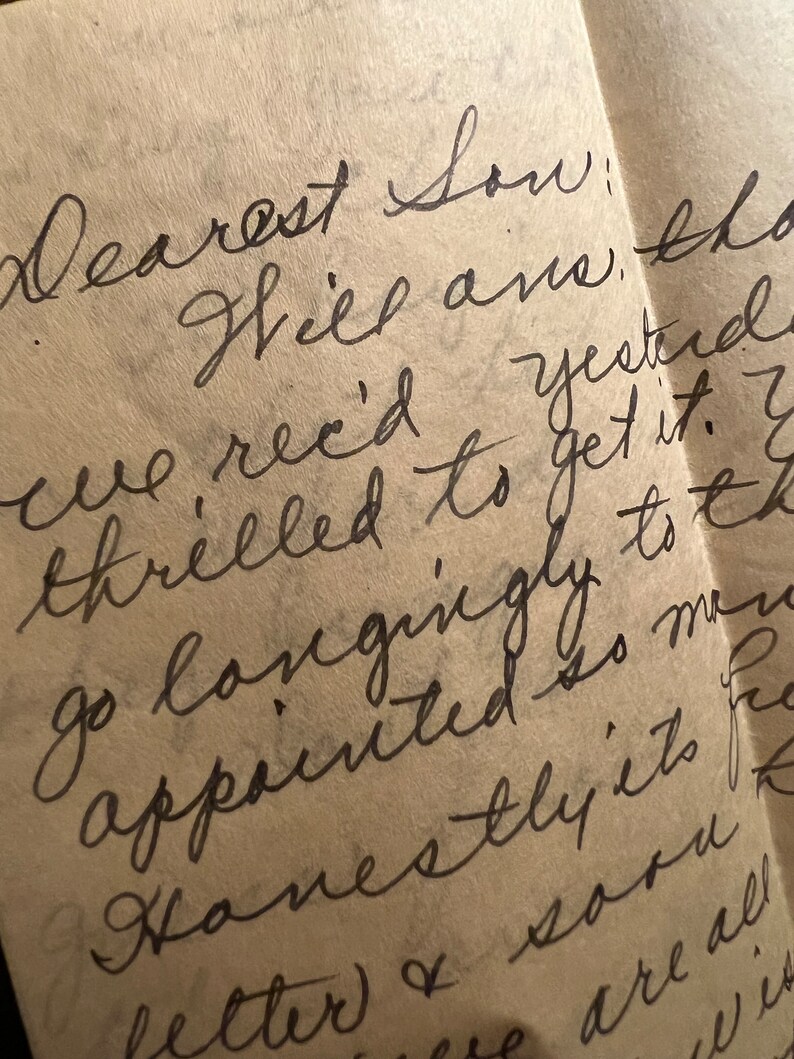 Dearest Son:
Will ans. tha
we rec'd yesterda
thrilled to get it. Y
go longingly to th
appointed so man
Honestly its fre
letter & soon
are all
wis